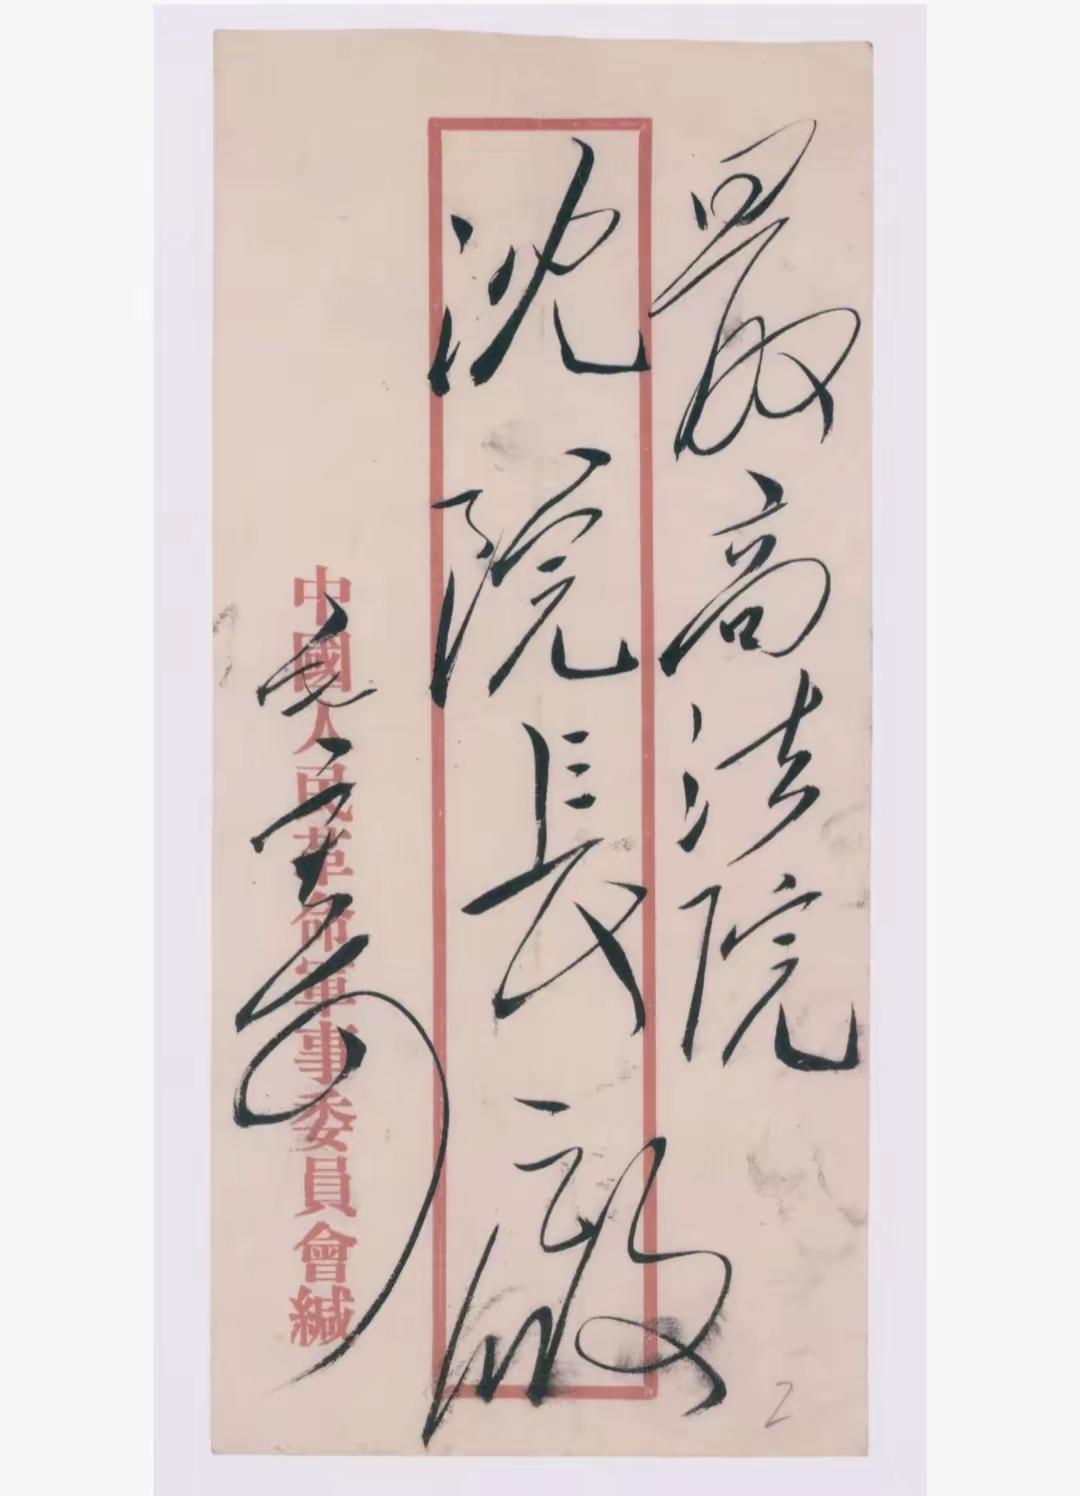 最高法院
沈院长啟
毛寄
中國人民革命軍事委員會緘
2